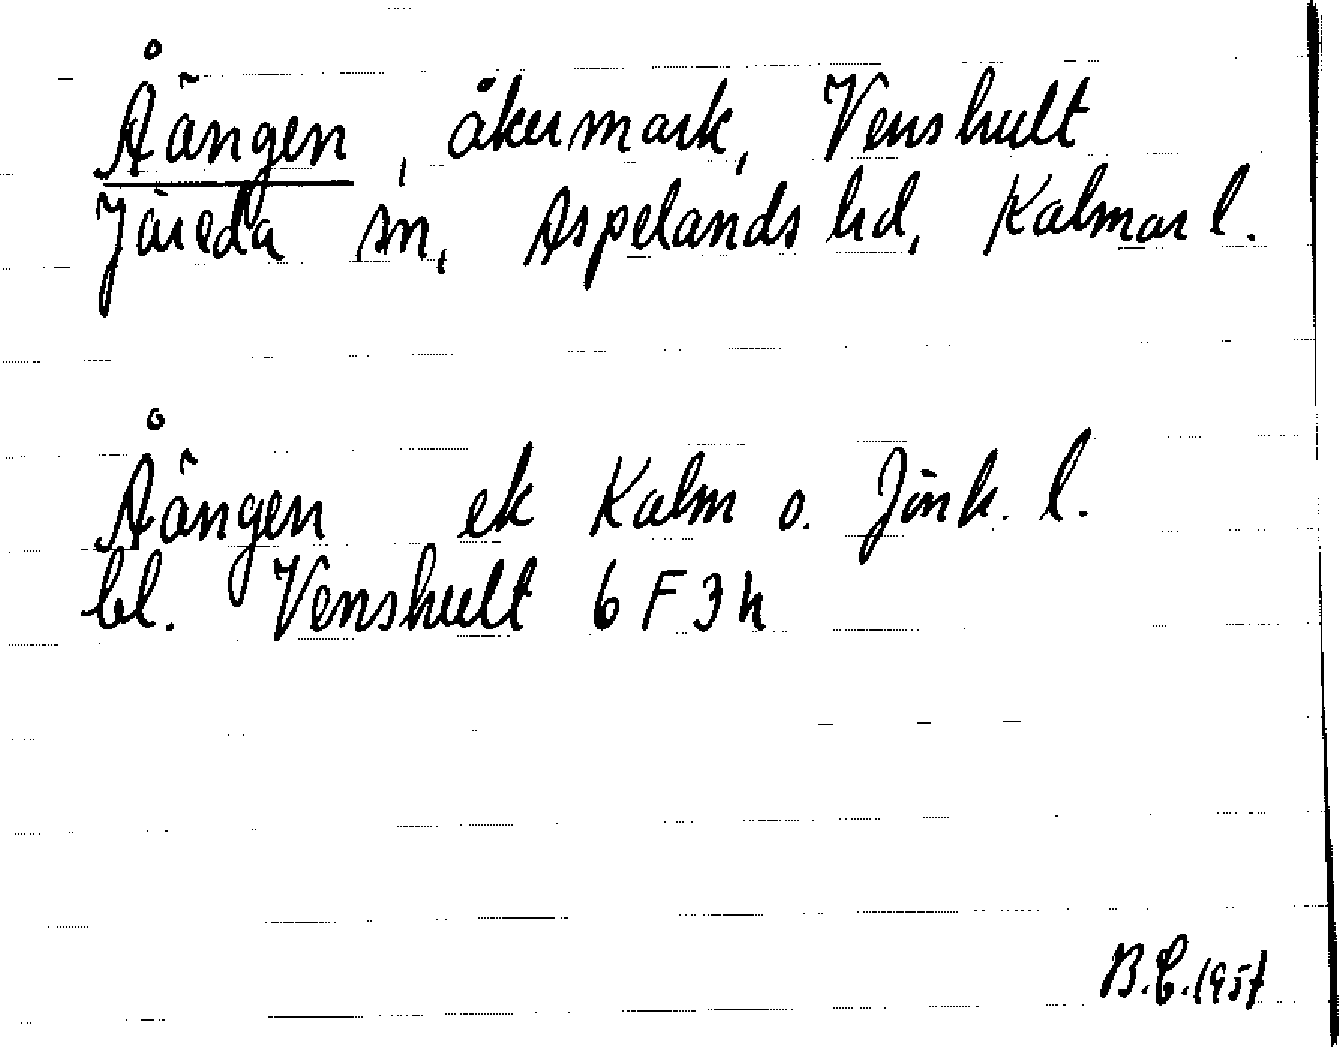 Åängen, åkermark, Venshult
Järeda sn, Aspelands hd, Kalmar l.
Åängen ek Kalm o. Jönk. l.
bl. Venshult 6 F 3 h
B.E. 1957